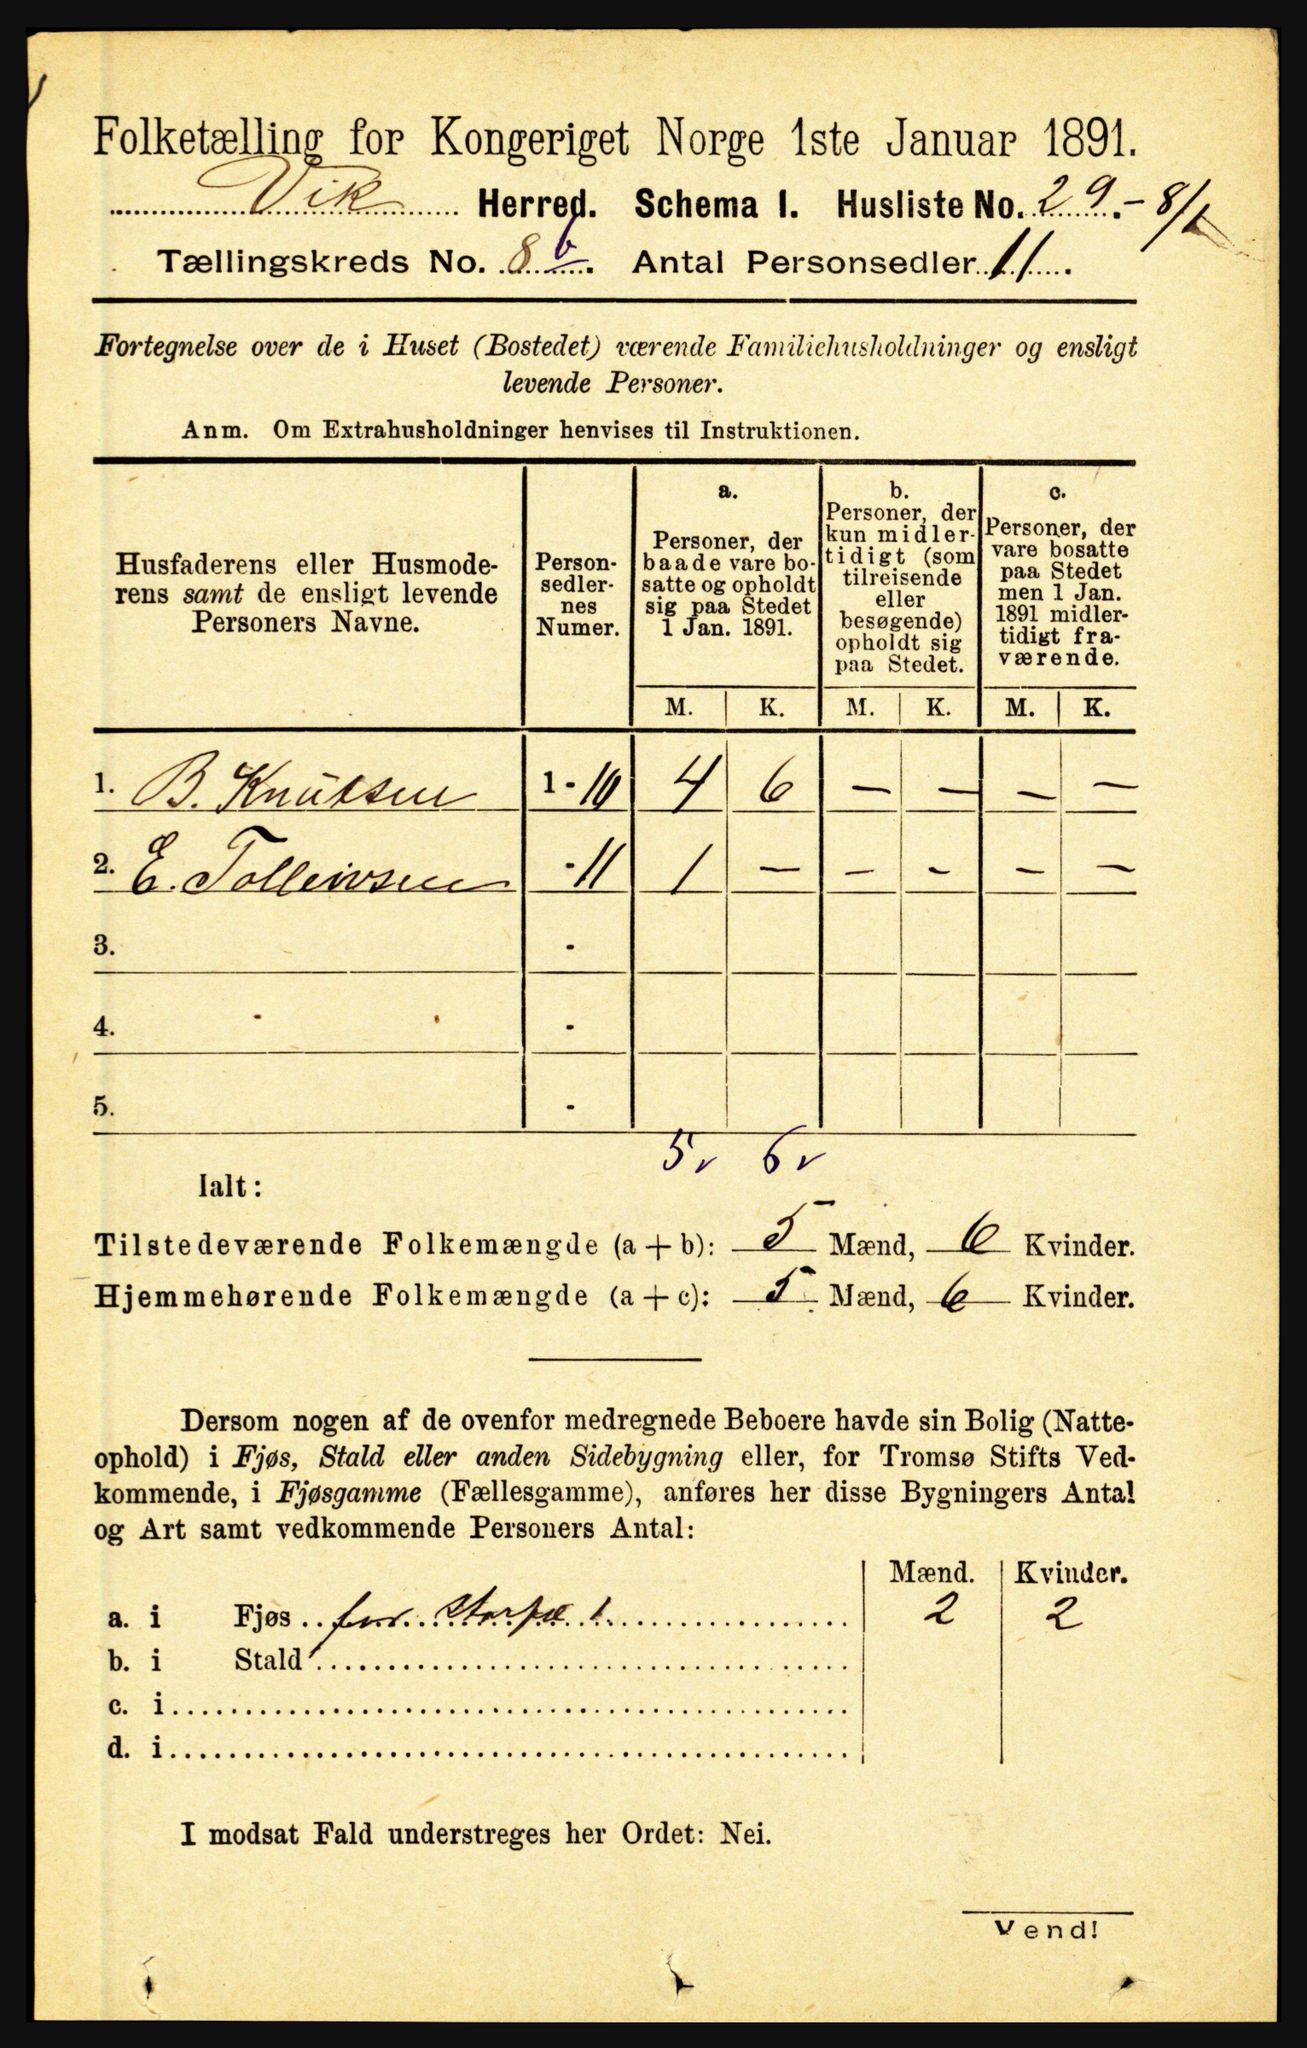 Folketælling for Kongeriget Norge 1ste Januar 1891.
Vik Herred. Schema I. Husliste No. 29.-8/1
Tællingskreds No. 8 b. Antal Personsedler 11.
Fortegnelse over de i Huset (Bostedet) værende Familiehusholdninger og ensligt
levende Personer.
Anm. Om Extrahusholdninger henvises til Instruktionen.
Husfaderens eller Husmode-
rens samt de ensligt levende
Personers Navne.
Person-
sedler-
nes
Numer.
a.
Personer, der
baade vare bo-
satte og opholdt
sig paa Stedet
1 Jan. 1891.
b.
Personer, der
kun midler-
tidigt (som
tilreisende
eller
besøgende)
opholdt sig
paa Stedet.
c.
Personer, der
vare bosatte
paa Stedet
men 1 Jan.
1891 midler-
tidigt fra-
værende.
M. K. M. K. M. K.
1. B. Knutsen 1-10 4 6 — — — —
2. E. Tolleivsen -11 1 — — - — —
3. -
4. -
5. -
5 v 6 v
Ialt:
Tilstedeværende Folkemængde (a + b): 5 Mænd, 6 Kvinder.
Hjemmehørende Folkemængde (a + c): 5 Mænd, 6 Kvinder.
Dersom nogen af de ovenfor medregnede Beboere havde sin Bolig (Natte-
ophold) i Fjøs, Stald eller anden Sidebygning eller, for Tromsø Stifts Ved-
kommende, i Fjøsgamme (Fællesgamme), anføres her disse Bygningers Antal
og Art samt vedkommende Personers Antal:
Mænd. Kvinder.
a. i Fjøs 1 2 2
b. i Stald
c. i
d. i
I modsat Fald understreges her Ordet: Nei.
Vend!